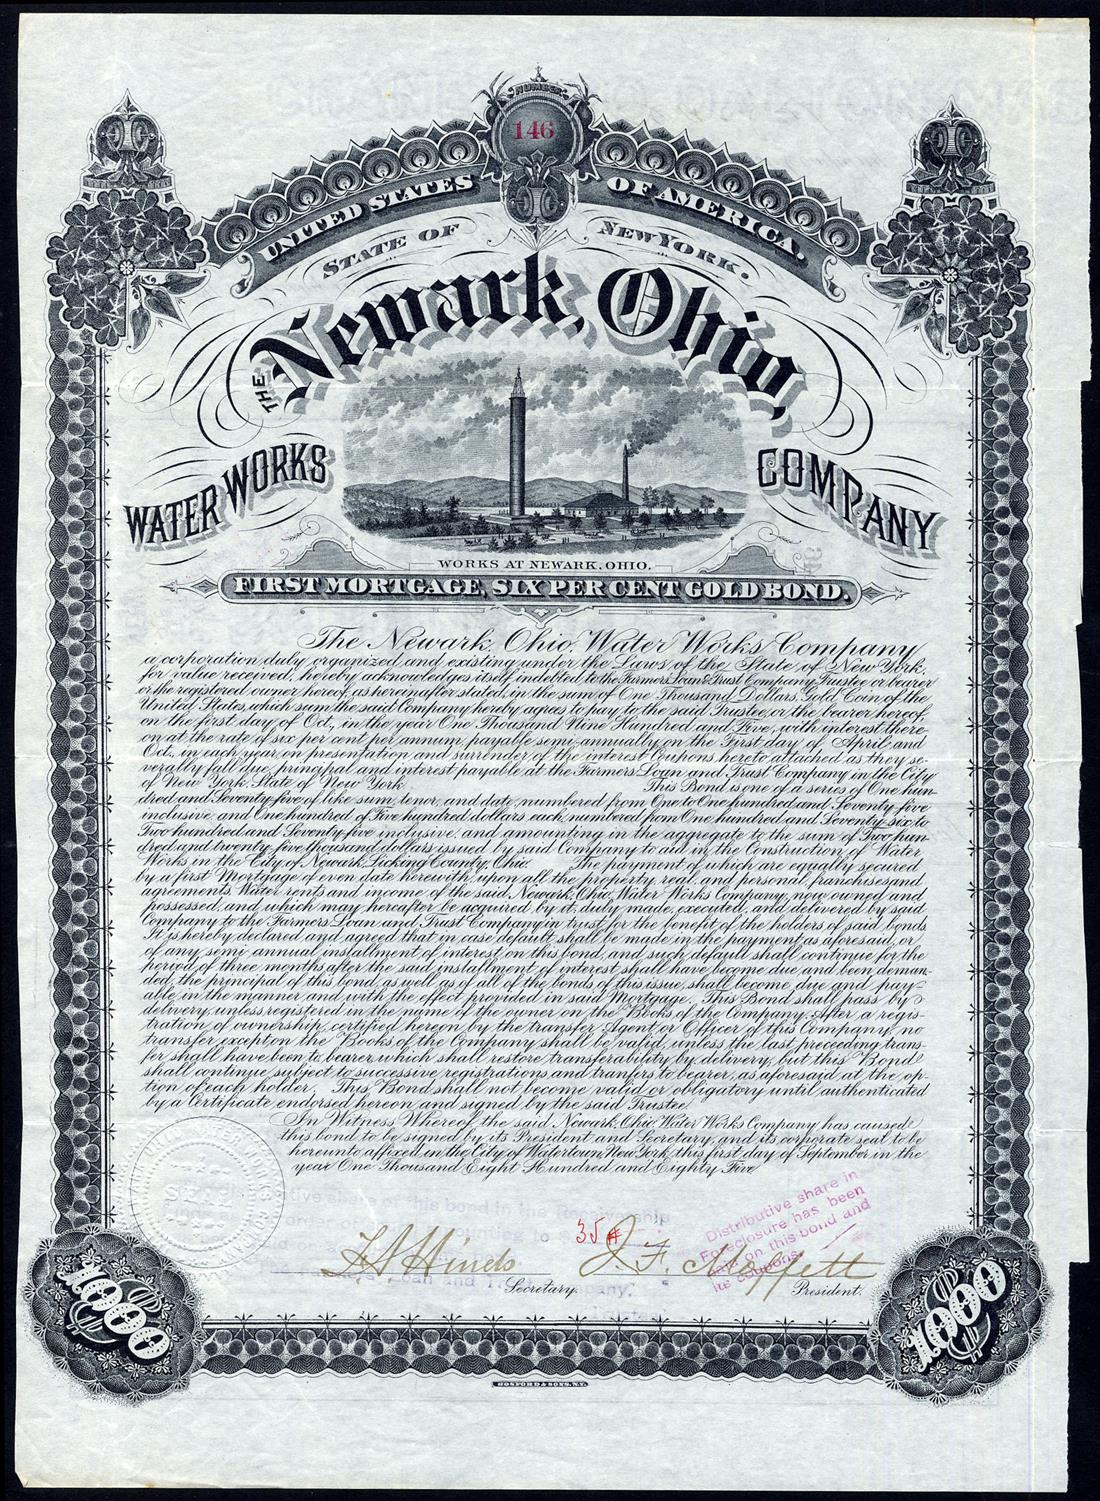 NUMBER
146
UNITED STATES OF AMERICA.
STATE OF NEW YORK.
THE Newark, Ohio,
WATER WORKS COMPANY
WORKS AT NEWARK, OHIO.
FIRST MORTGAGE, SIX PER CENT GOLD BOND.
The Newark, Ohio, Water Works Company
a corporation duly organized and existing under the Laws of the State of New York,
for value received, hereby acknowledges itself indebted to the Farmers Loan & Trust Company, Trustee or bearer
or the registered owner hereof, as hereinafter stated, in the sum of One Thousand Dollars, Gold Coin of the
United States, which sum the said Company hereby agrees to pay to the said Trustee, or the bearer hereof,
on the first day of Oct., in the year One Thousand Nine Hundred and Five, with interest there-
on at the rate of six per cent per annum, payable semi-annually, on the First day of April and
Oct., in each year, on presentation and surrender of the interest Coupons hereto attached as they se-
verally fall due, principal and interest payable at the Farmers Loan and Trust Company in the City
of New York, State of New York This Bond is one of a series of One hun-
dred and Seventy-five of like sum, tenor, and date, numbered from One to One hundred and Seventy five
inclusive, and One hundred of Five hundred dollars each, numbered from One hundred and Seventy six to
Two hundred and Seventy-five inclusive, and amounting in the aggregate to the sum of Two hun-
dred and twenty five thousand dollars issued by said Company to aid in the Construction of Water
Works in the City of Newark, Licking County, Ohio. The payment of which are equally secured
by a first Mortgage of even date herewith, upon all the property, real and personal, franchises and
agreements Water rents and income of the said, Newark, Ohio, Water Works Company, now owned and
possessed, and which may hereafter be acquired by it, duly made, executed, and delivered by said
Company to the Farmers Loan and Trust Company in trust for the benefit of the holders of said bonds
It is hereby declared and agreed that in case default shall be made in the payment as aforesaid, or
of any semi annual installment of interest on this bond, and such default shall continue for the
period of three months after the said installment of interest shall have become due and been deman-
ded, the principal of this bond, as well as of all of the bonds of this issue, shall become due and pay-
able in the manner and with the effect provided in said Mortgage. This Bond shall pass by
delivery, unless registered in the name of the owner on the Books of the Company. After a regis-
tration of ownership, certified hereon by the transfer Agent, or Officer of this Company, no
transfer except on the Books of the Company shall be valid, unless the last preceeding trans-
fer shall have been to bearer, which shall restore transferability by delivery, but this Bond
shall continue subject to successive registrations, and tranfers to bearer, as aforesaid at the op-
tion of each holder. This Bond shall not become valid or obligatory until authenticated
by a Certificate endorsed hereon and signed by the said Trustee.
In Witness Whereof, the said Newark, Ohio, Water Works Company has caused
this bond to be signed by its President and Secretary, and its corporate seal to be
hereunto affixed in the City of Watertown, New York, this first day of September in the
year One Thousand Eight Hundred and Eighty Five
Distributive share in
Foreclosure has been
on this bond and
its coupons.
35
Secretary. President.
1000 1000
HOSFORD & SONS, N.Y.